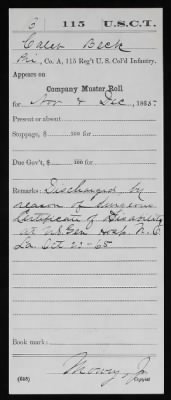 B 115 U.S.C.T.
Caleb Beck
Pvt., Co. A, 115 Reg't U. S. Col'd Infantry.
Appears on
Company Muster Roll
for Nov & Dec, 1865.
Present or absent
Stoppage, $ 100 for
Due Gov't, $ 100 for
Remarks: Discharged by
reason of Surgeons
Certificate of Disability
at U.S. Gen Hosp. N.O.
La Oct 22-65
Book mark:
Mowry, Jr
(658) Copyist.